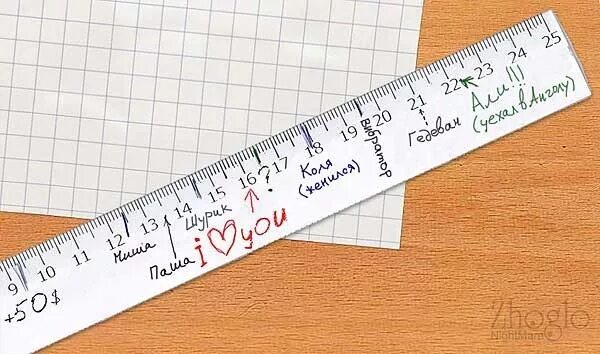 9 10 11 12 13 14 15 16 17 18 19 20 21 22 23 24 25
+50$
Миша
Паша
Шурик
i ♡ you
?
Коля
(женился)
Вибратор
Гедеван
Али!!!
(уехал в Анголу)
Zhoglo
NightMam